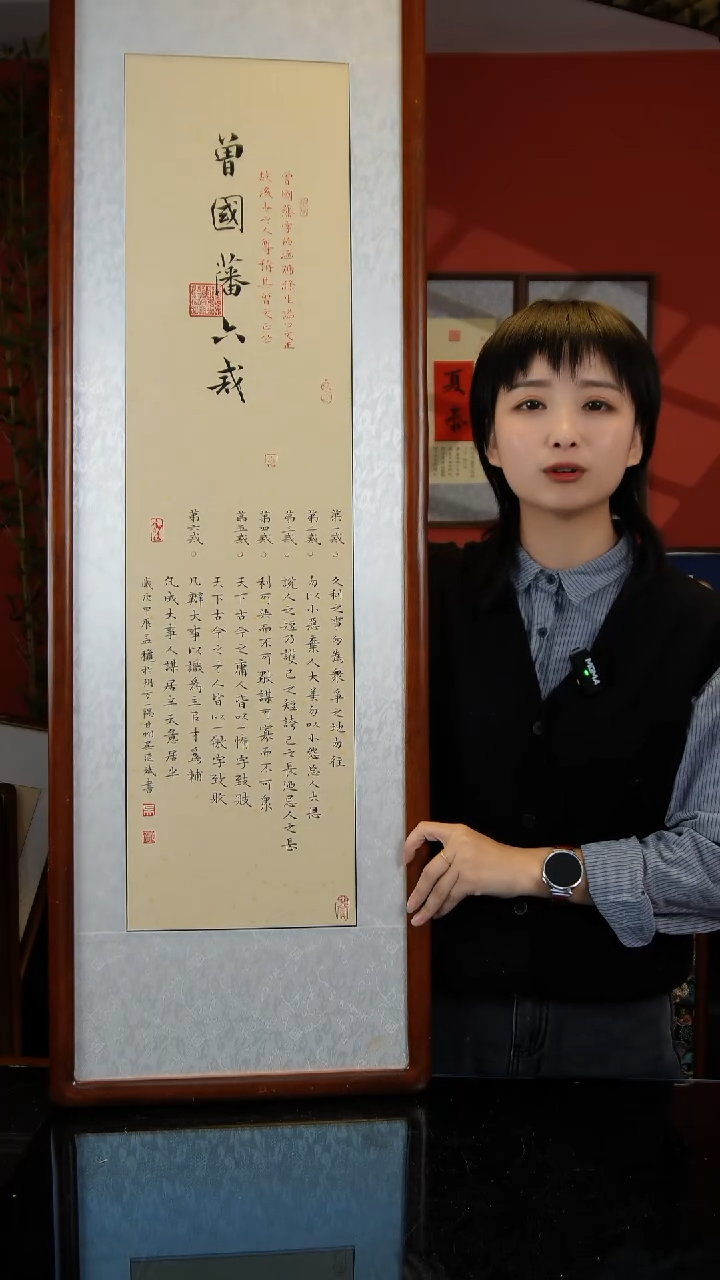 曾國藩六戒
曾國藩字伯涵號滌生諡曰文正
故後世之人尊稱其曾文正公
第一戒。久利之事勿為眾爭之地勿往
第二戒。勿以小惡棄人大美勿以小怨忘人大恩
第三戒。說人之短乃護己之短誇己之長迺忌人之長
第四戒。利可共而不可獨謀可寡而不可眾
第五戒。天下古今之庸人皆以一惰字致敗
天下古今之才人皆以一傲字致敗
第六戒。凡辦大事以識為主以才為輔
凡成大事人謀居半天意居半
歲次甲辰孟
書
MOMA
夏